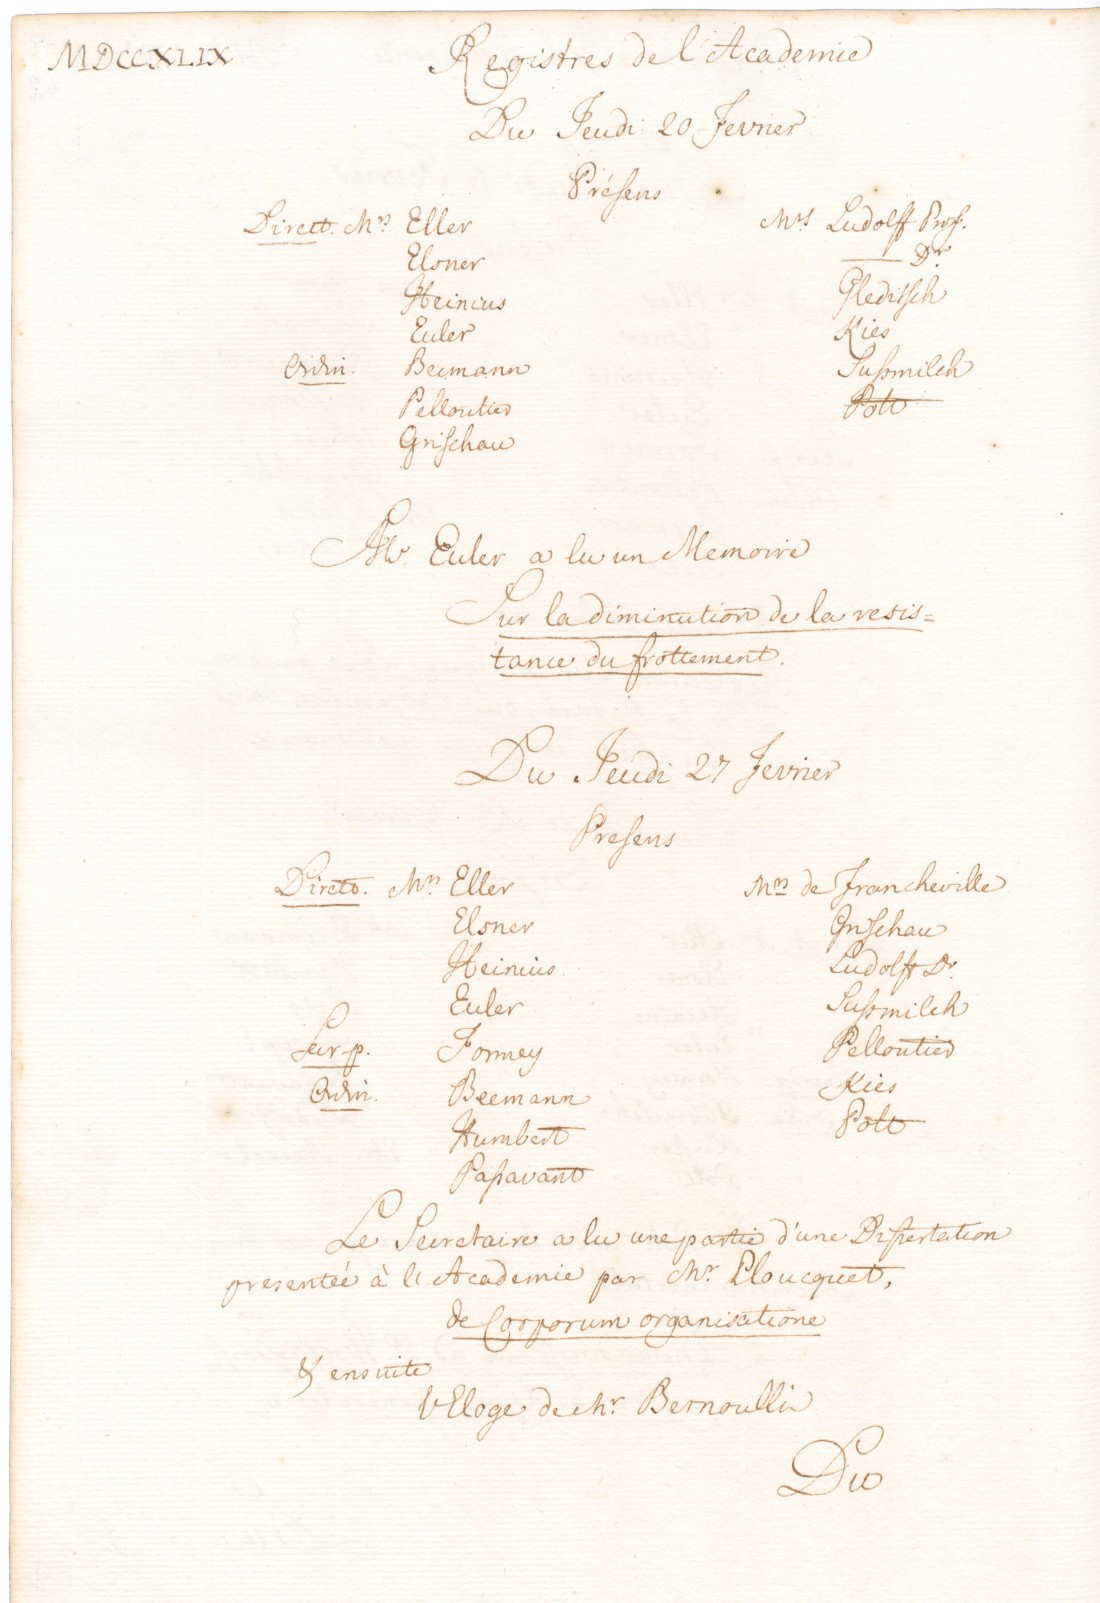 MDCCXLIX
Registres de l'Academie
Du Jeudi 20 Fevrier
Présens
Direct. Mrs Eller
Elsner
Heinius
Euler
Ordin. Becmann
Pelloutier
Grischau
Mrs Ludolff Prof.
—— Dr.
Gleditsch
Kies
Susmilch
Pott
Mr. Euler a lu un Memoire
Sur la diminution de la resis=
tance du frottement.
Du Jeudi 27 Fevrier
Presens
Direct. Mrs Eller
Elsner
Heinius
Euler
Secr. p. Formey
Ordin. Becmann
Humbert
Passavant
Mrs de Francheville
Grischau
Ludolff Dr.
Susmilch
Pelloutier
Kies
Pott
Le Secretaire a lu une partie d'une Dissertation
presentée à l'Academie par Mr. Ploucquet,
de Corporum organisatione
& ensuite
l'Eloge de Mr. Bernoulli
Du